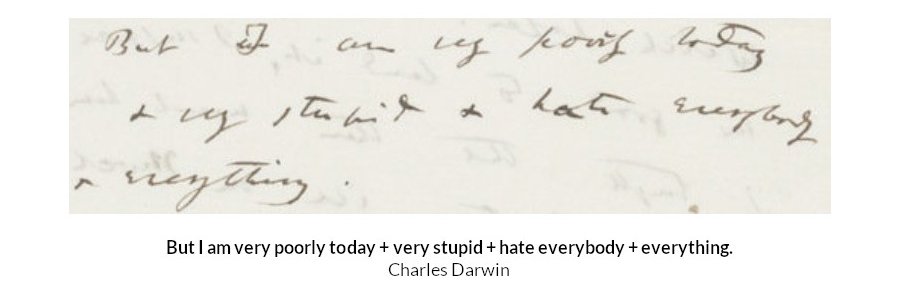 But I am very poorly today
+ very stupid + hate everybody
+ everything.
But I am very poorly today + very stupid + hate everybody + everything.
Charles Darwin